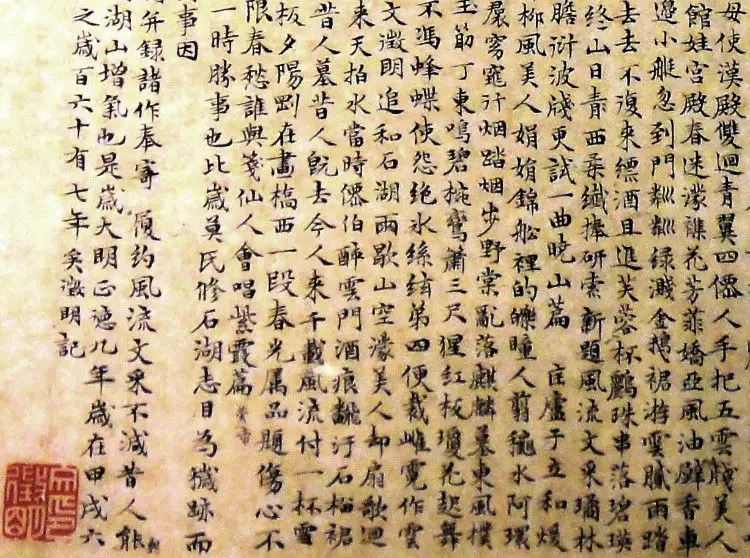 母使漢殿雙迴青翼四僊人手把五雲牋美人
館娃宮殿春迷濛雜花芳菲嬌亞風油壁香車
過小艇忽到門粼粼綠濺金摶裙游雲膩雨踏
去去不復來縹酒且進芙蓉杯鸝珠串落碧
終山日青西柔纖捧研索新題風流文采璚林
波牋更試一曲曉山篇 于立和煖
柳風美人娟娟錦船裡的皪瞳人剪穐水阿環
窈窕行烟踏烟步野棠亂落麒麟墓東風
玉筯丁東鳴碧椀鸞簫三尺猩紅板瓊花起舞
不馮蜂蝶使怨絶冰絲第四便裁雌霓作雲
文徵明追和石湖雨歇山空濛美人却扇歌迴
來天拍水當時僊伯醉雲門酒痕翻汙石榴裙
昔人墓昔人既去今人來千載風流付一杯雪
板夕陽剛在畫橋西一段春光屬品題傷心不
限春愁誰與箋仙人會唱紫霞篇
一時勝事也比歲莫氏修石湖志目為穢跡而
事因
年錄諸作奉寄履約風流文采不減昔人能
湖山增氣也是歲大明正德九年歲在甲戌六
之歲百六十有七年矣徵明記